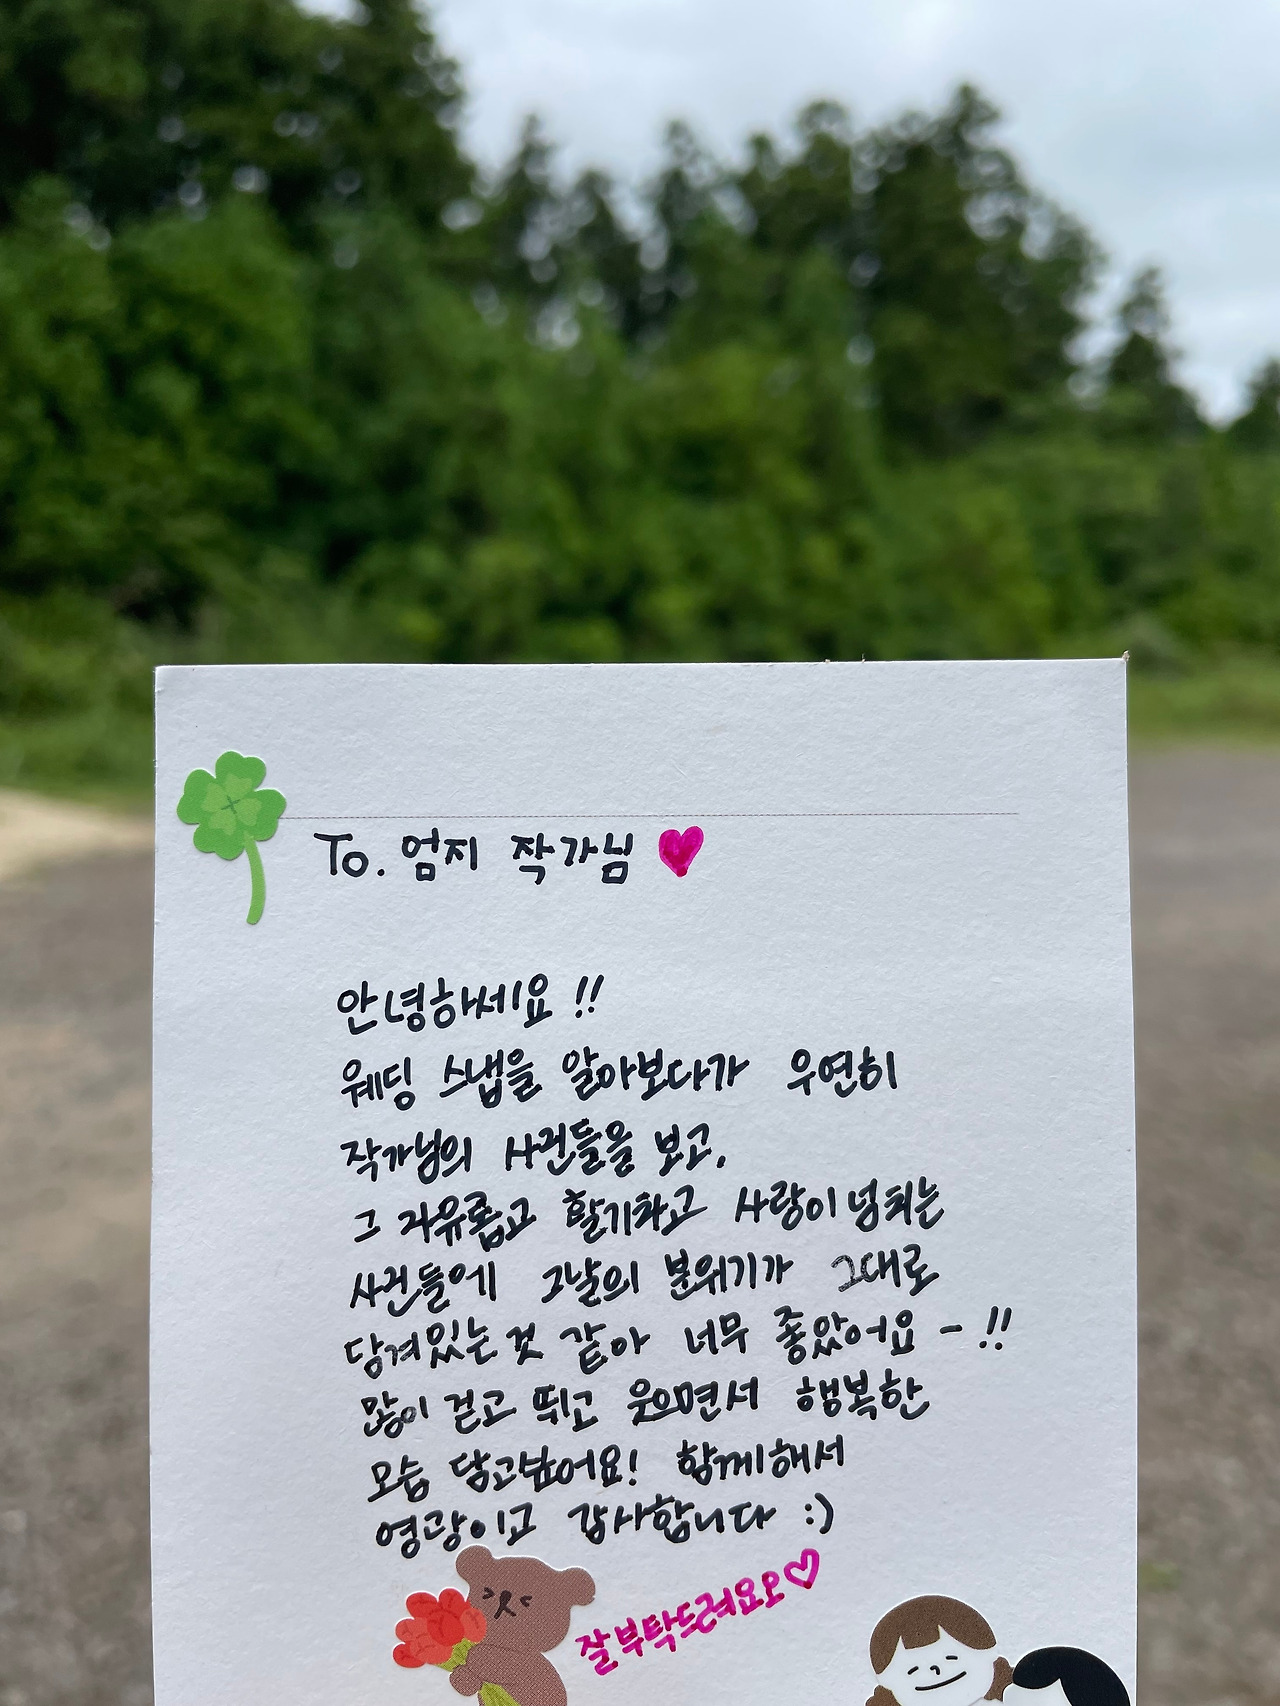 To. 엄지 작가님
안녕하세요!!
웨딩 스냅을 알아보다가 우연히
작가님의 사진들을 보고,
그 자유롭고 활기차고 사랑이 넘치는
사진들에 그날의 분위기가 그대로
담겨있는 것 같아 너무 좋았어요-!!
많이 걷고 뛰고 웃으면서 행복한
모습 담고싶어요! 함께해서
영광이고 감사합니다 :)
잘부탁드려요오♡